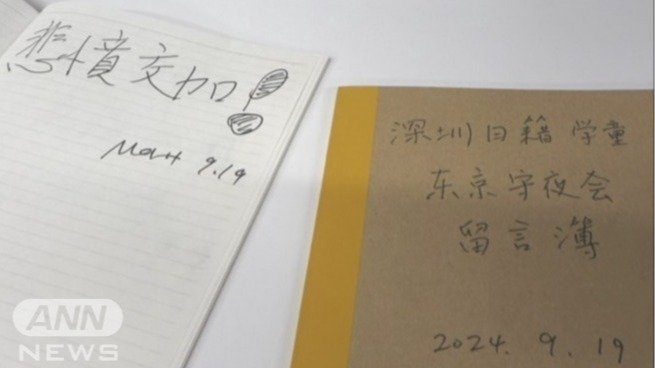 悲憤交加!
Matt 9.19
深圳日籍学童
东京守夜会
留言簿
2024.9.19
ANN
NEWS